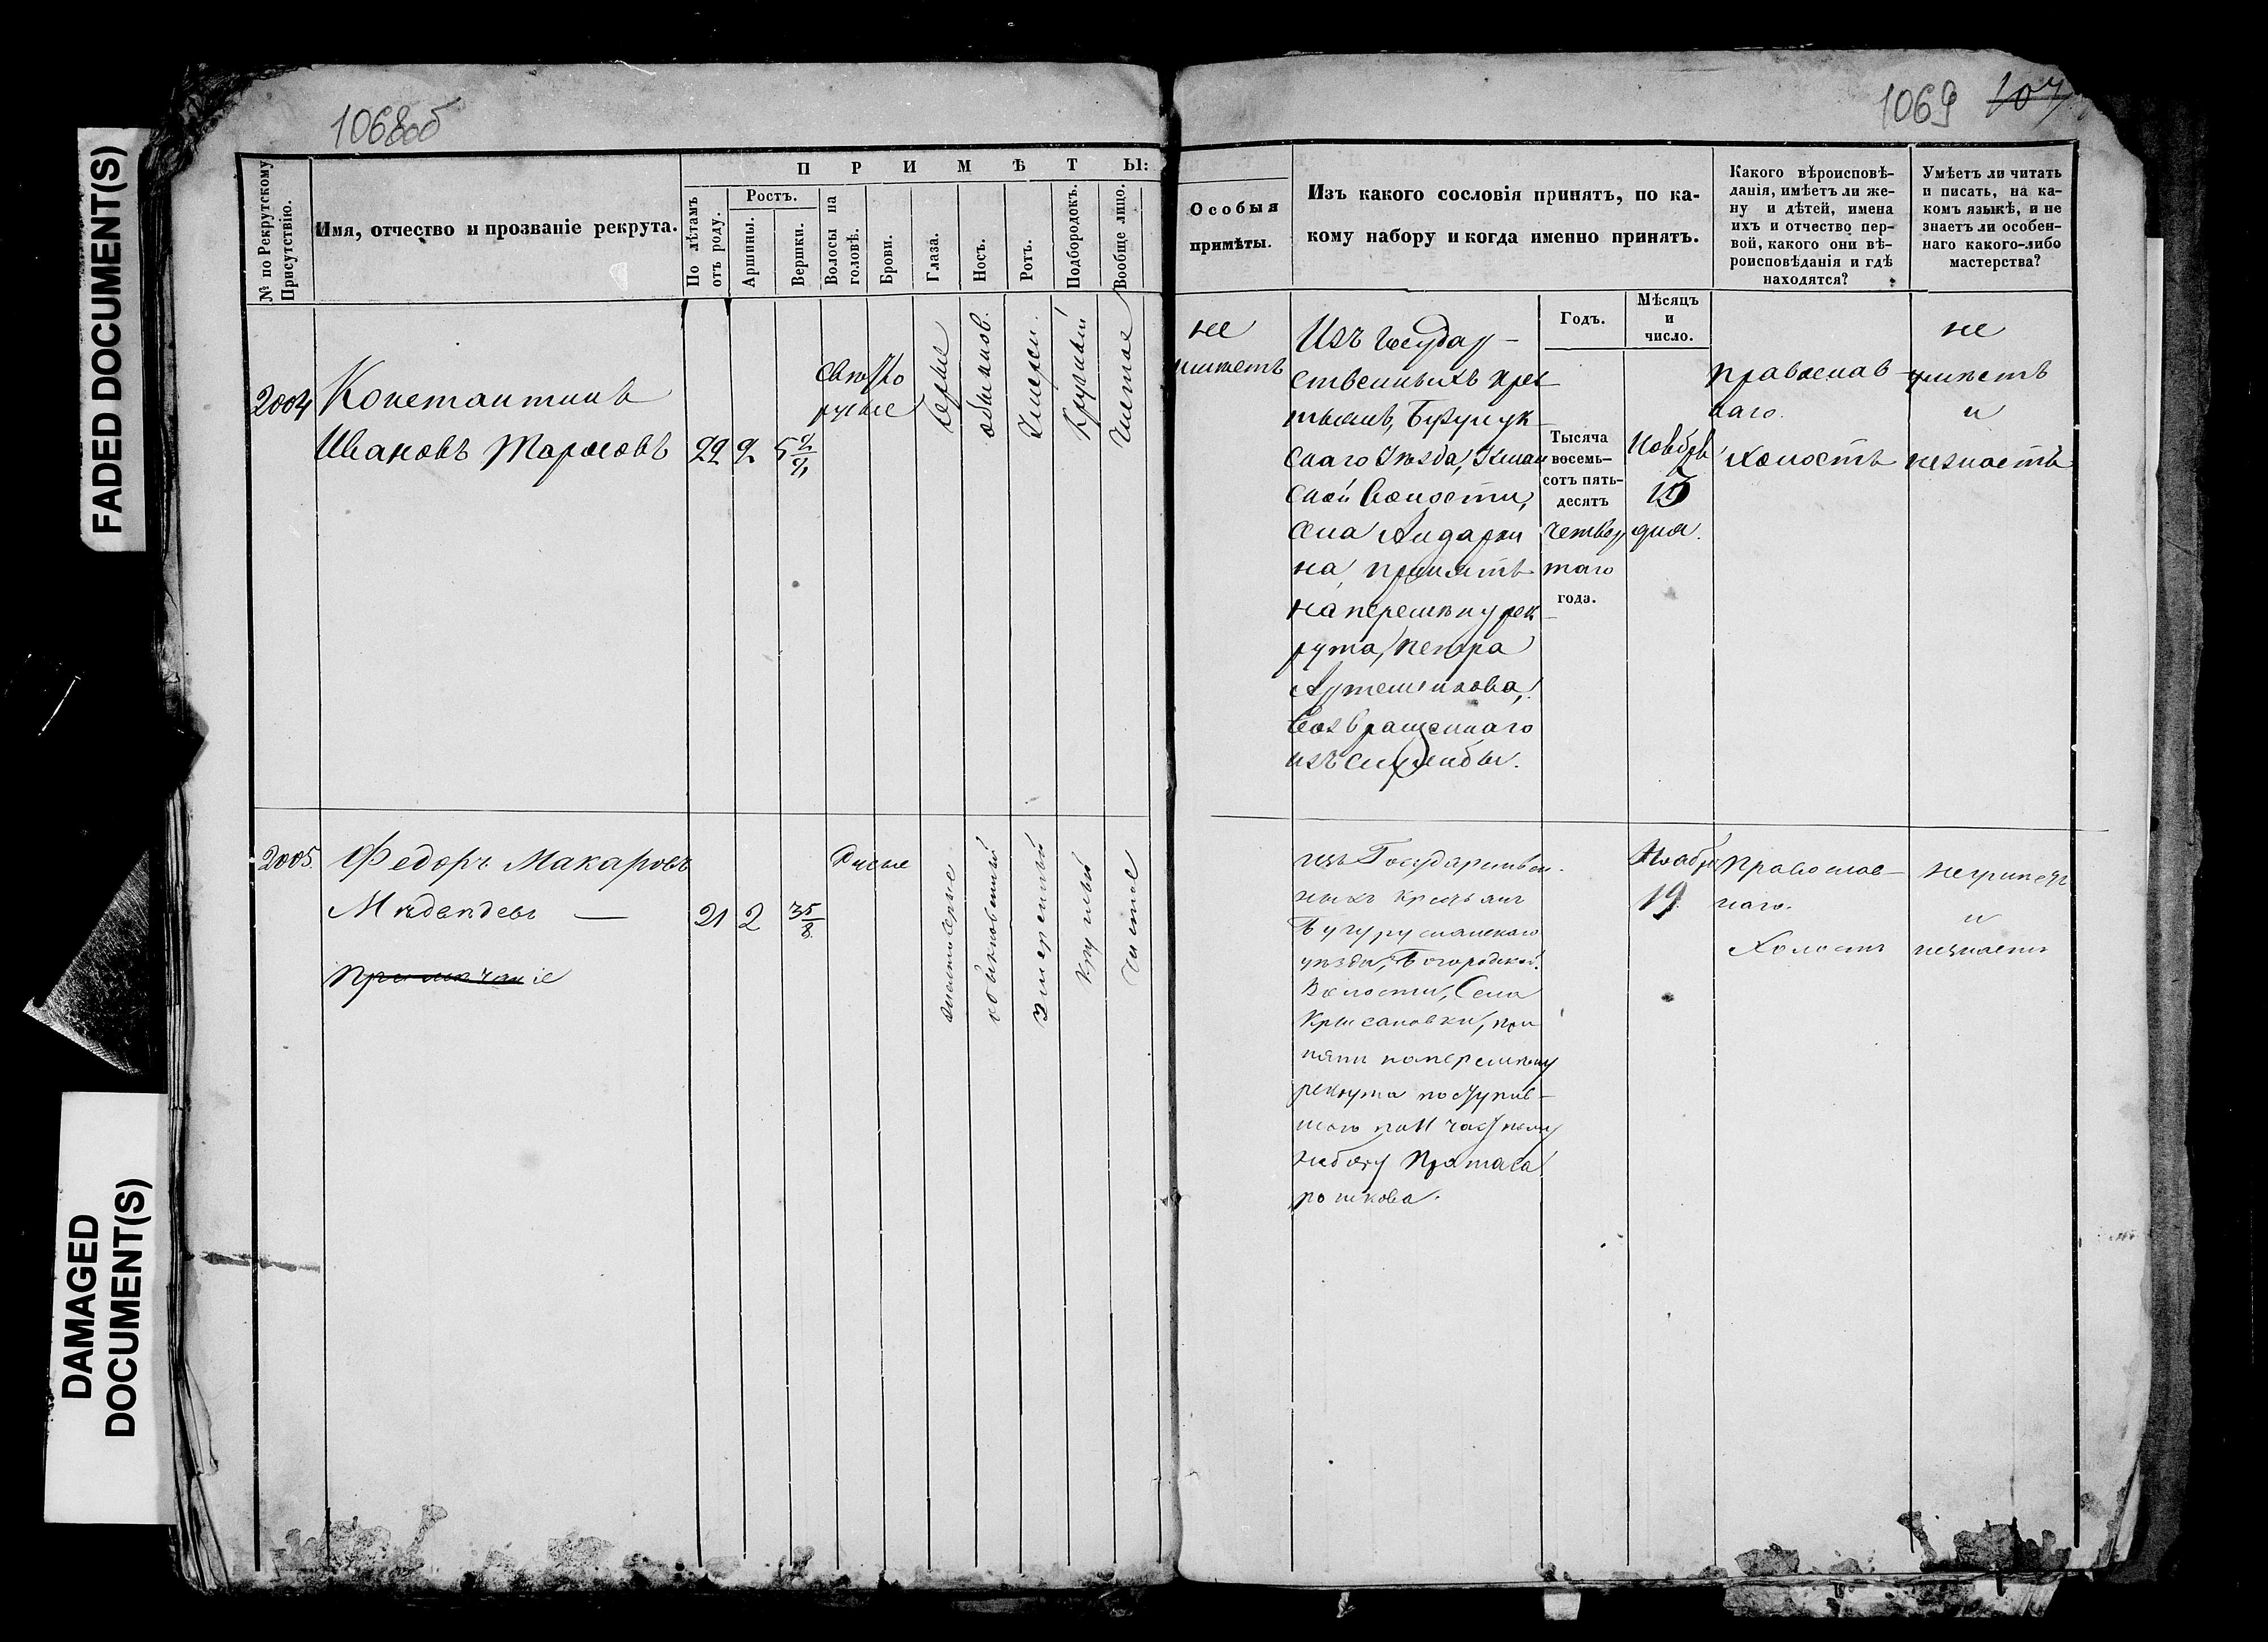 FADED DOCUMENT(S)
DAMAGED
DOCUMENT(S)
1068об
№ по Рекрутскому
Присутствію.
Имя, отчество и прозваніе рекрута.
ПРИМѢТЫ:
По лѣтамъ
отъ роду.
Ростъ.
Аршины.
Вершки.
Волосы на
головѣ.
Брови.
Глаза.
Носъ.
Ротъ.
Подбородокъ.
Вообще лицо.
2004
Константинъ
Ивановъ
22
2
5
Свѣтло
русые
Сѣрые
обыкнов.
Умѣрен.
Круглый
Чистое
2005.
Федоръ Макаровъ
Медведевъ —
21
2
3 5/8
Русые
обыкновенный
Умеренный
Круглый
Чистое
Примечаніе
1069
107
Особыя
примѣты.
Изъ какого сословія принятъ, по ка-
кому набору и когда именно принятъ.
Какого вѣроисповѣ-
данія, имѣетъ ли же-
ну и дѣтей, имена
ихъ и отчество пер-
вой, какого они вѣ-
роисповѣданія и гдѣ
находятся?
Умѣетъ ли читать
и писать, на ка-
комъ языкѣ, и не
знаетъ ли особен-
наго какого-либо
мастерства?
Годъ.
Мѣсяцъ
и
число.
не
имѣетъ
Изъ Государ-
ственныхъ крес-
тьянъ, Бузулук
скаго Уѣзда,
ской Волости,
села
на, принятъ
на перемѣну рек-
рута, Петра
возвращеннаго
изъ службы.
Тысяча
восемь-
сотъ пять-
десятъ
четвер
таго
года.
Ноября
дня.
Православ-
наго.
Холостъ
не
умѣетъ
и
незнаетъ
изъ Государствен-
ныхъ крестьянъ
Бугурусланскаго
уезда, Богородской
Волости, Села
Крысановки, при
нятъ наперемѣну
рекрута поступив-
шаго по 11 частному
набору Протаса
Ноября
19
Православ-
наго.
Холостъ
неумѣетъ
и
незнаетъ